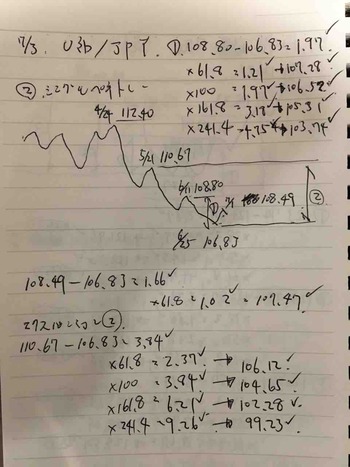 7/3. USD/JPY. ① 108.80-106.83=1.97✓
×61.8=1.21✓→107.28✓
×100=1.97✓→106.52✓
×161.8=3.18✓→105.31✓
×241.4=4.75✓→103.74✓
②
4/24 112.40
5/21 110.67
6/11 108.80
① 7/1 108.49
②
6/25 106.83
108.49-106.83=1.66✓
×61.8=1.02✓=107.47✓
エクスパンション②.
110.67-106.83=3.84✓
×61.8=2.37✓→106.12✓
×100=3.84✓→104.65✓
×161.8=6.21✓→102.28✓
×241.4=9.26✓→99.23✓